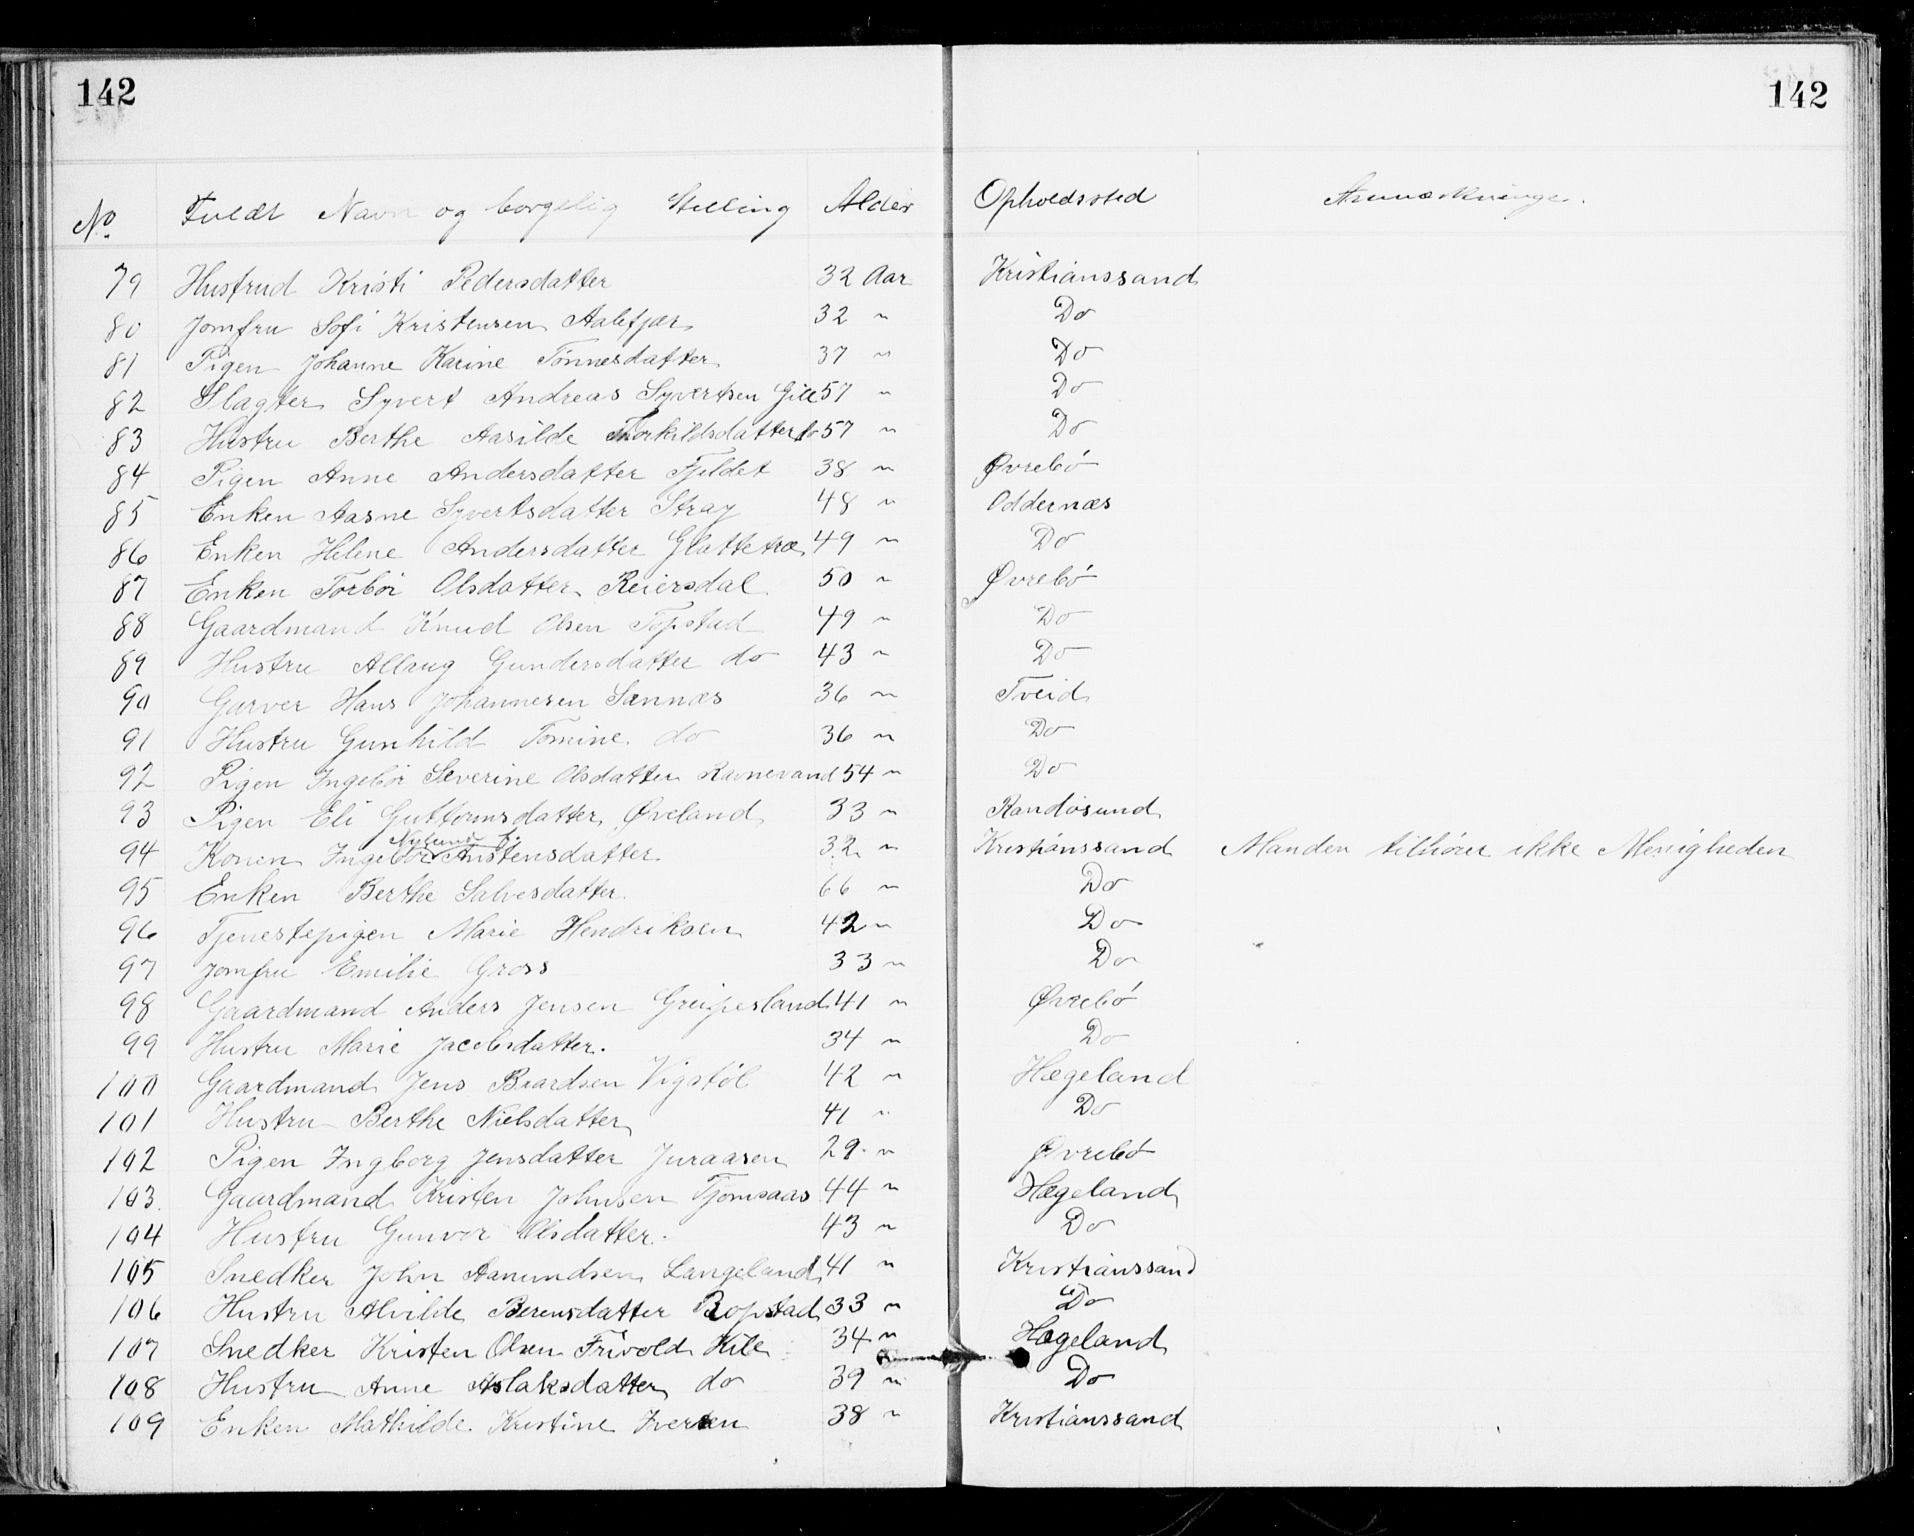 142 142
No. Fuldt Navn og borgelig Stilling Alder Opholdssted Anmærkninger.
79 Hustrud Kristi Pedersdatter 32 Aar Kristianssand
80 Jomfru Sofi Kristensen Aalefjær 32 " Do
81 Pigen Johanne Karine Tønnesdatter 37 " Do
82 Slagter Syvert Andreas Syvertsen Gill 57 " Do
83 Hustru Berthe Aasilde Thorkildsdatter do 57 " Do
84 Pigen Anne Andersdatter Fjeldet 38 " Øvrebö
85 Enken Aasne Syvertsdatter Stray 48 " Oddernæs
86 Enken Helene Andersdatter Glattetræ 49 " Do
87 Enken Torbör Olsdatter Reiersdal 50 " Øvrebö
88 Gaardmand Knud Olsen Topstad 49 " Do
89 Hustru Allaug Gundersdatter do 43 " Do
90 Garver Hans Johannesen Sannæs 36 " Tveid
91 Hustru Gunhild Tomine do 36 " Do
92 Pigen Ingebör Severine Olsdatter Ravnevand 54 " Do
93 Pigen Eli Guttormsdatter Øveland 33 " Randösund
94 Konen Ingebör Anstensdatter 32 " Kristianssand Manden tilhörer ikke Menigheden
95 Enken Berthe Salvesdatter 66 " Do
96 Tjenestepigen Marie Hendriksen 42 " Do
97 Jomfru Emilie Gross 33 " Do
98 Gaardmand Anders Jensen Greipesland 41 " Øvrebö
99 Hustru Marie Jacobsdatter. 34 " Do
100 Gaardmand Jens Baardsen Vigstøl 42 " Hægeland
101 Hustru Berthe Nielsdatter 41 " Do
102 Pigen Ingborg Jensdatter Juraasen 29 " Øvrebö
103. Gaardmand Kristen Johnsen Tjomsaas 44 " Hægeland
104 Hustru Gunvor Olsdatter. 43 " Do
105 Snedker John Aanundsen Langeland 41 " Kristianssand
106 Hustru Alvilde Berensdatter Ropstad 33 " Do
107 Snedker Kristen Olsen Frivold Kile 34 " Hægeland
108 Hustru Anne Aslaksdatter do 39 " Do
109 Enken Mathilde Kristine Iversen 38 " Kristianssand